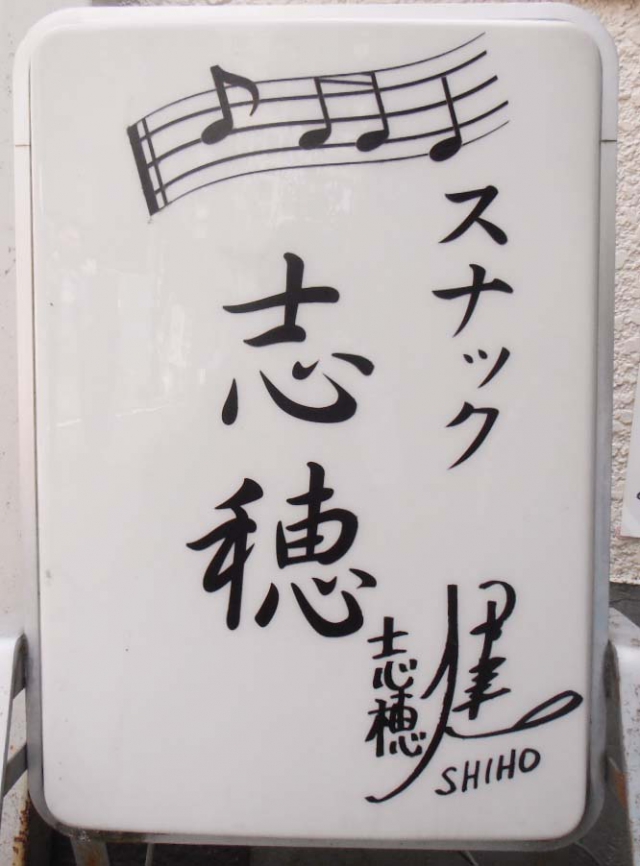 スナック
志穂
志穂
SHIHO